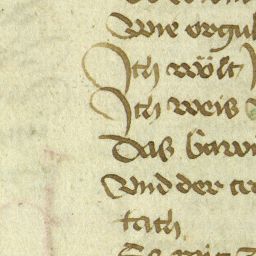 Wie orgul
Ich wölt
Ich weis
Das Gawi
Vnd der tr
tath